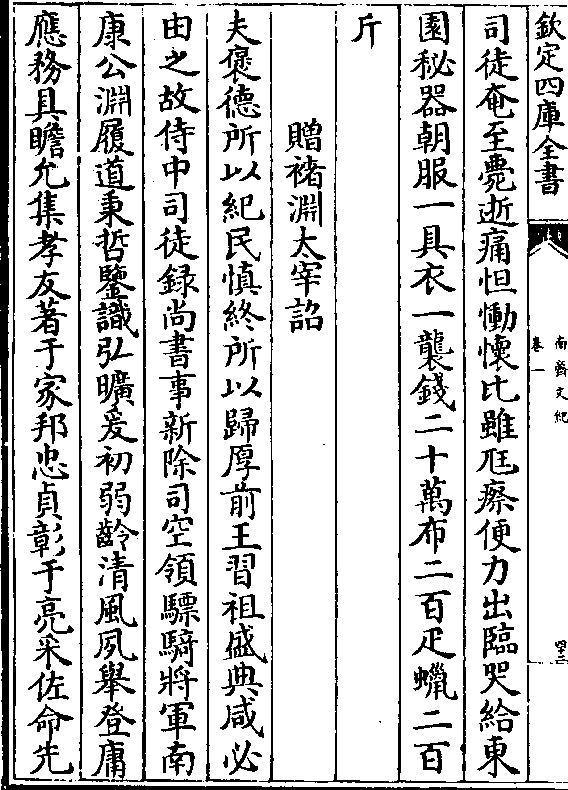 欽定四庫全書
南齊文紀
卷一
四十二
司徒奄至薨逝痛怛慟懷比雖尫瘵便力出臨哭給東
園秘器朝服一具衣一襲錢二十萬布二百疋蠟二百
斤
贈褚淵太宰詔
夫褒德所以紀民慎終所以歸厚前王習祖盛典咸必
由之故侍中司徒録尚書事新除司空領驃騎將軍南
康公淵履道秉哲鑒識弘曠爰初弱齡清風夙舉登庸
應務具瞻允集孝友著于家邦忠貞彰于亮采佐命先